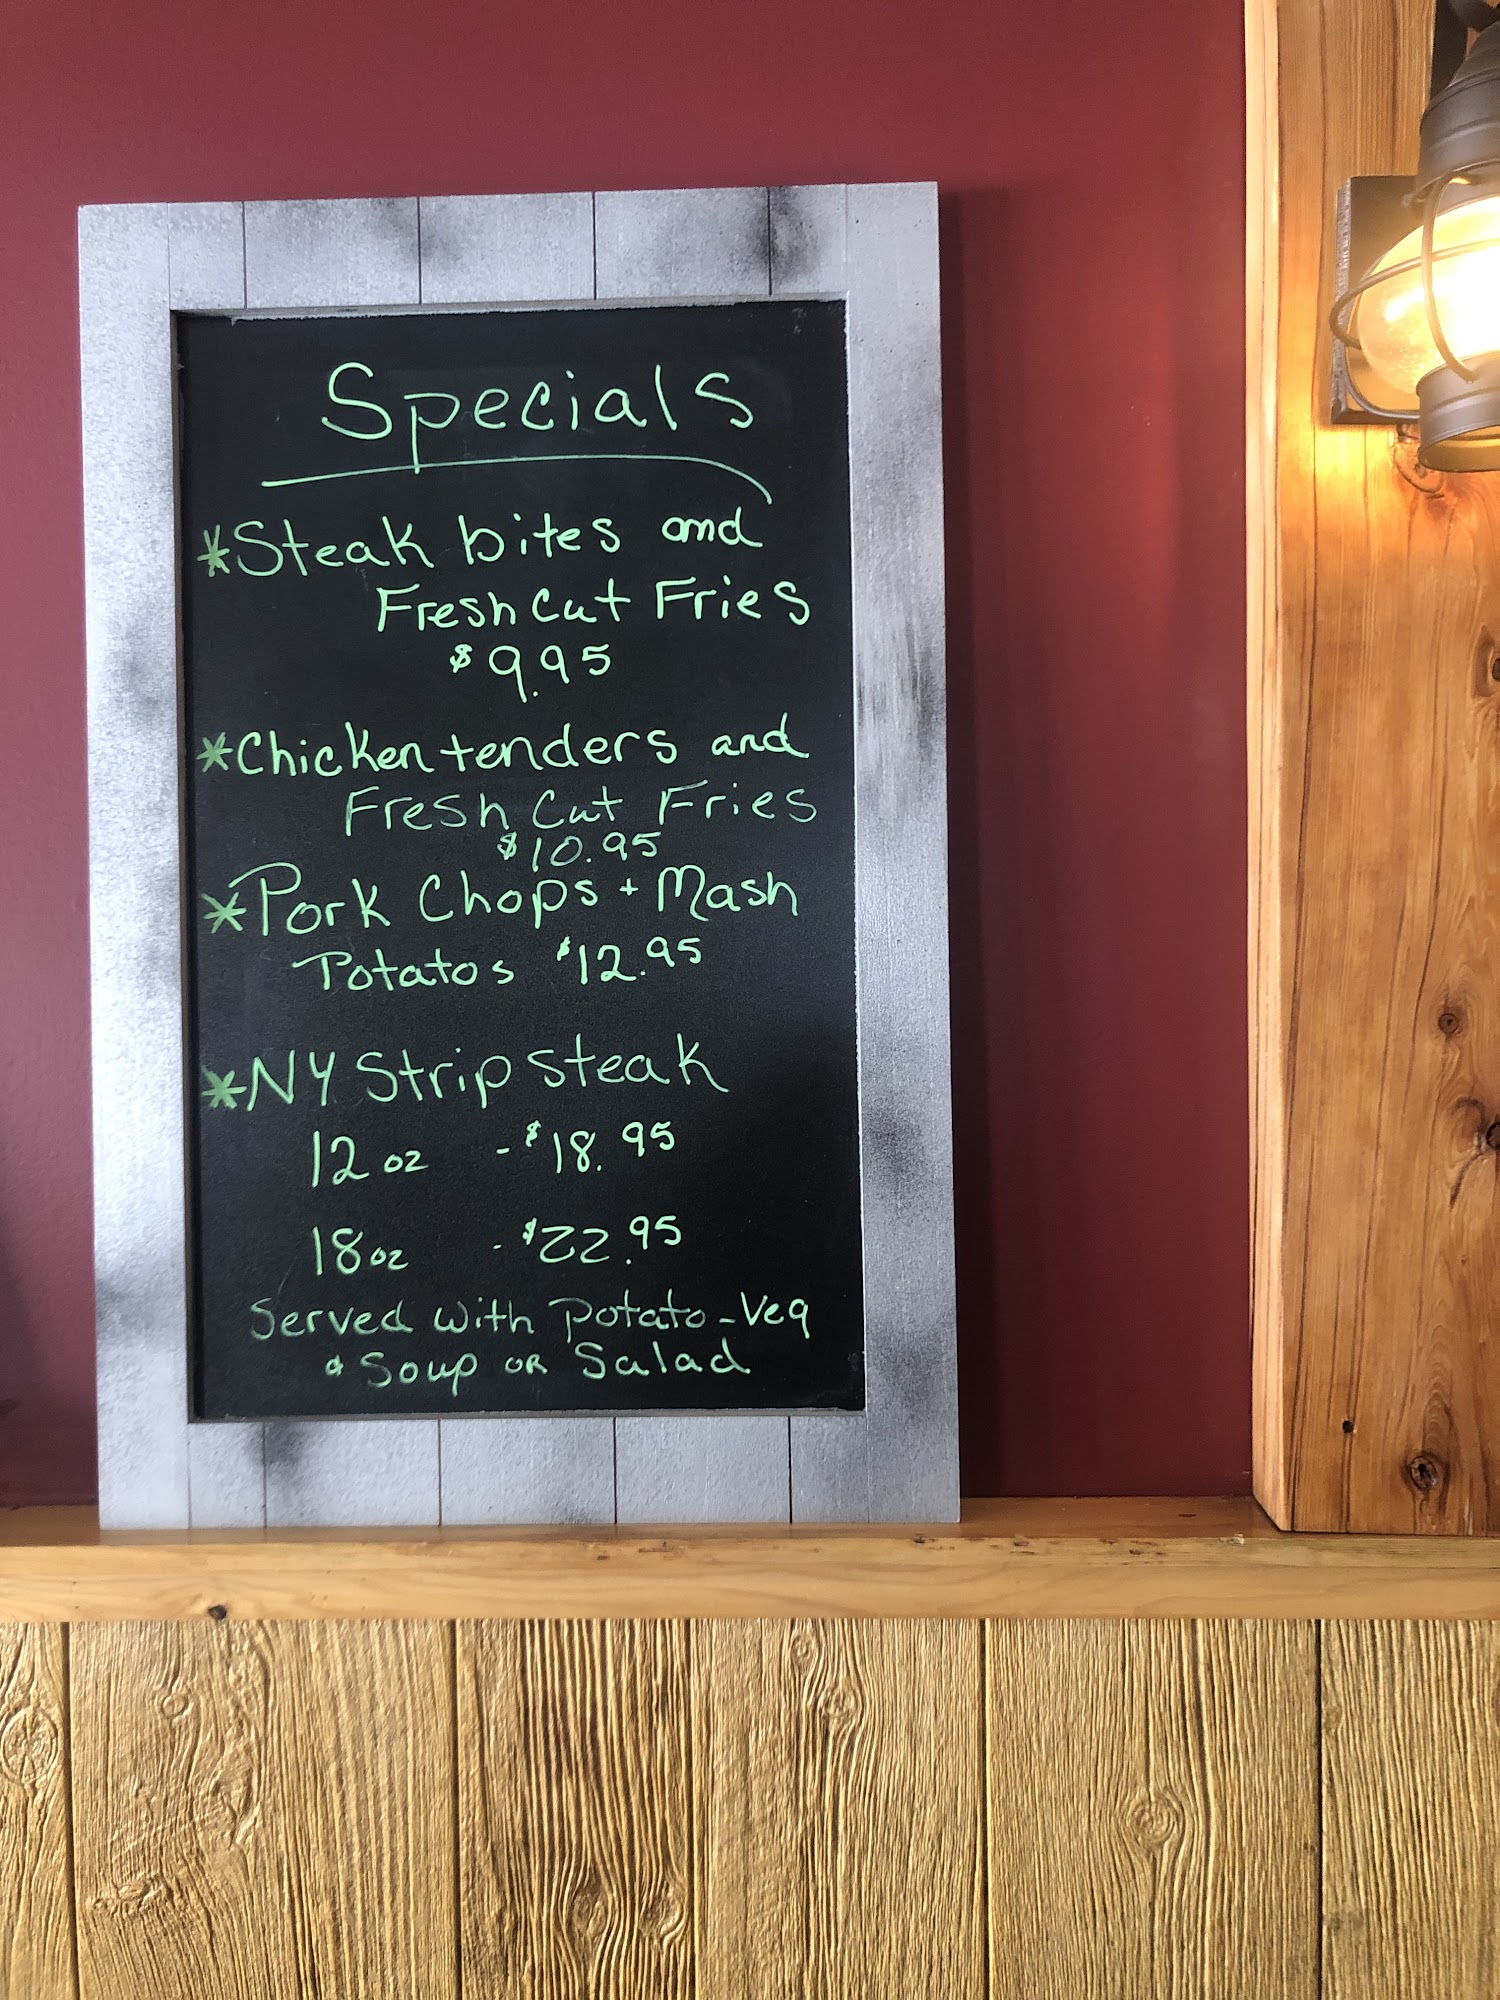 Specials
*Steak bites and
Fresh Cut Fries
$9.95
*Chicken tenders and
Fresh Cut Fries
$10.95
*Pork Chops + Mash
Potatos $12.95
*NY Strip Steak
12 oz - $18.95
18 oz - $22.95
Served with potato - Veg
& Soup OR Salad